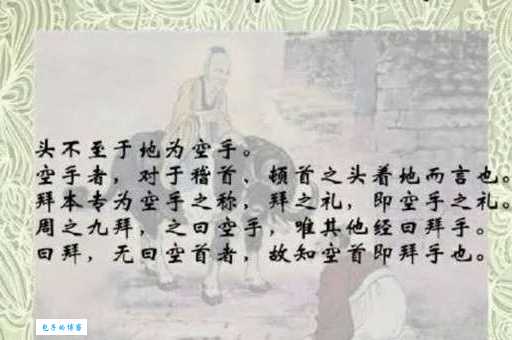 头不至于地为空手。
空手者，对于稽首、顿首之头着地而言也。
拜本专为空手之称，拜之礼，即空手之礼。
周之九拜，之曰空手，唯其他经曰拜手。
曰拜，无曰空首者，故知空首即拜手也。